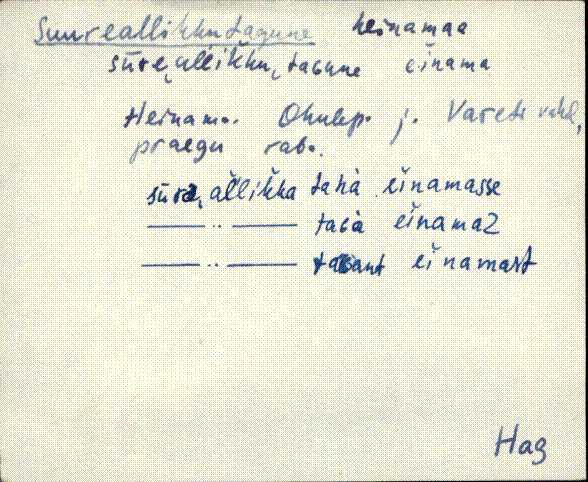 Suureallikku tagune heinamaa
sūre, allikku, tagune einama
Heinam. Ohulep. j. Varets vahel,
praegu raba.
sūre, allikka taha einamasse
— " — taga einamaz
— " — tagant einamast
Hag